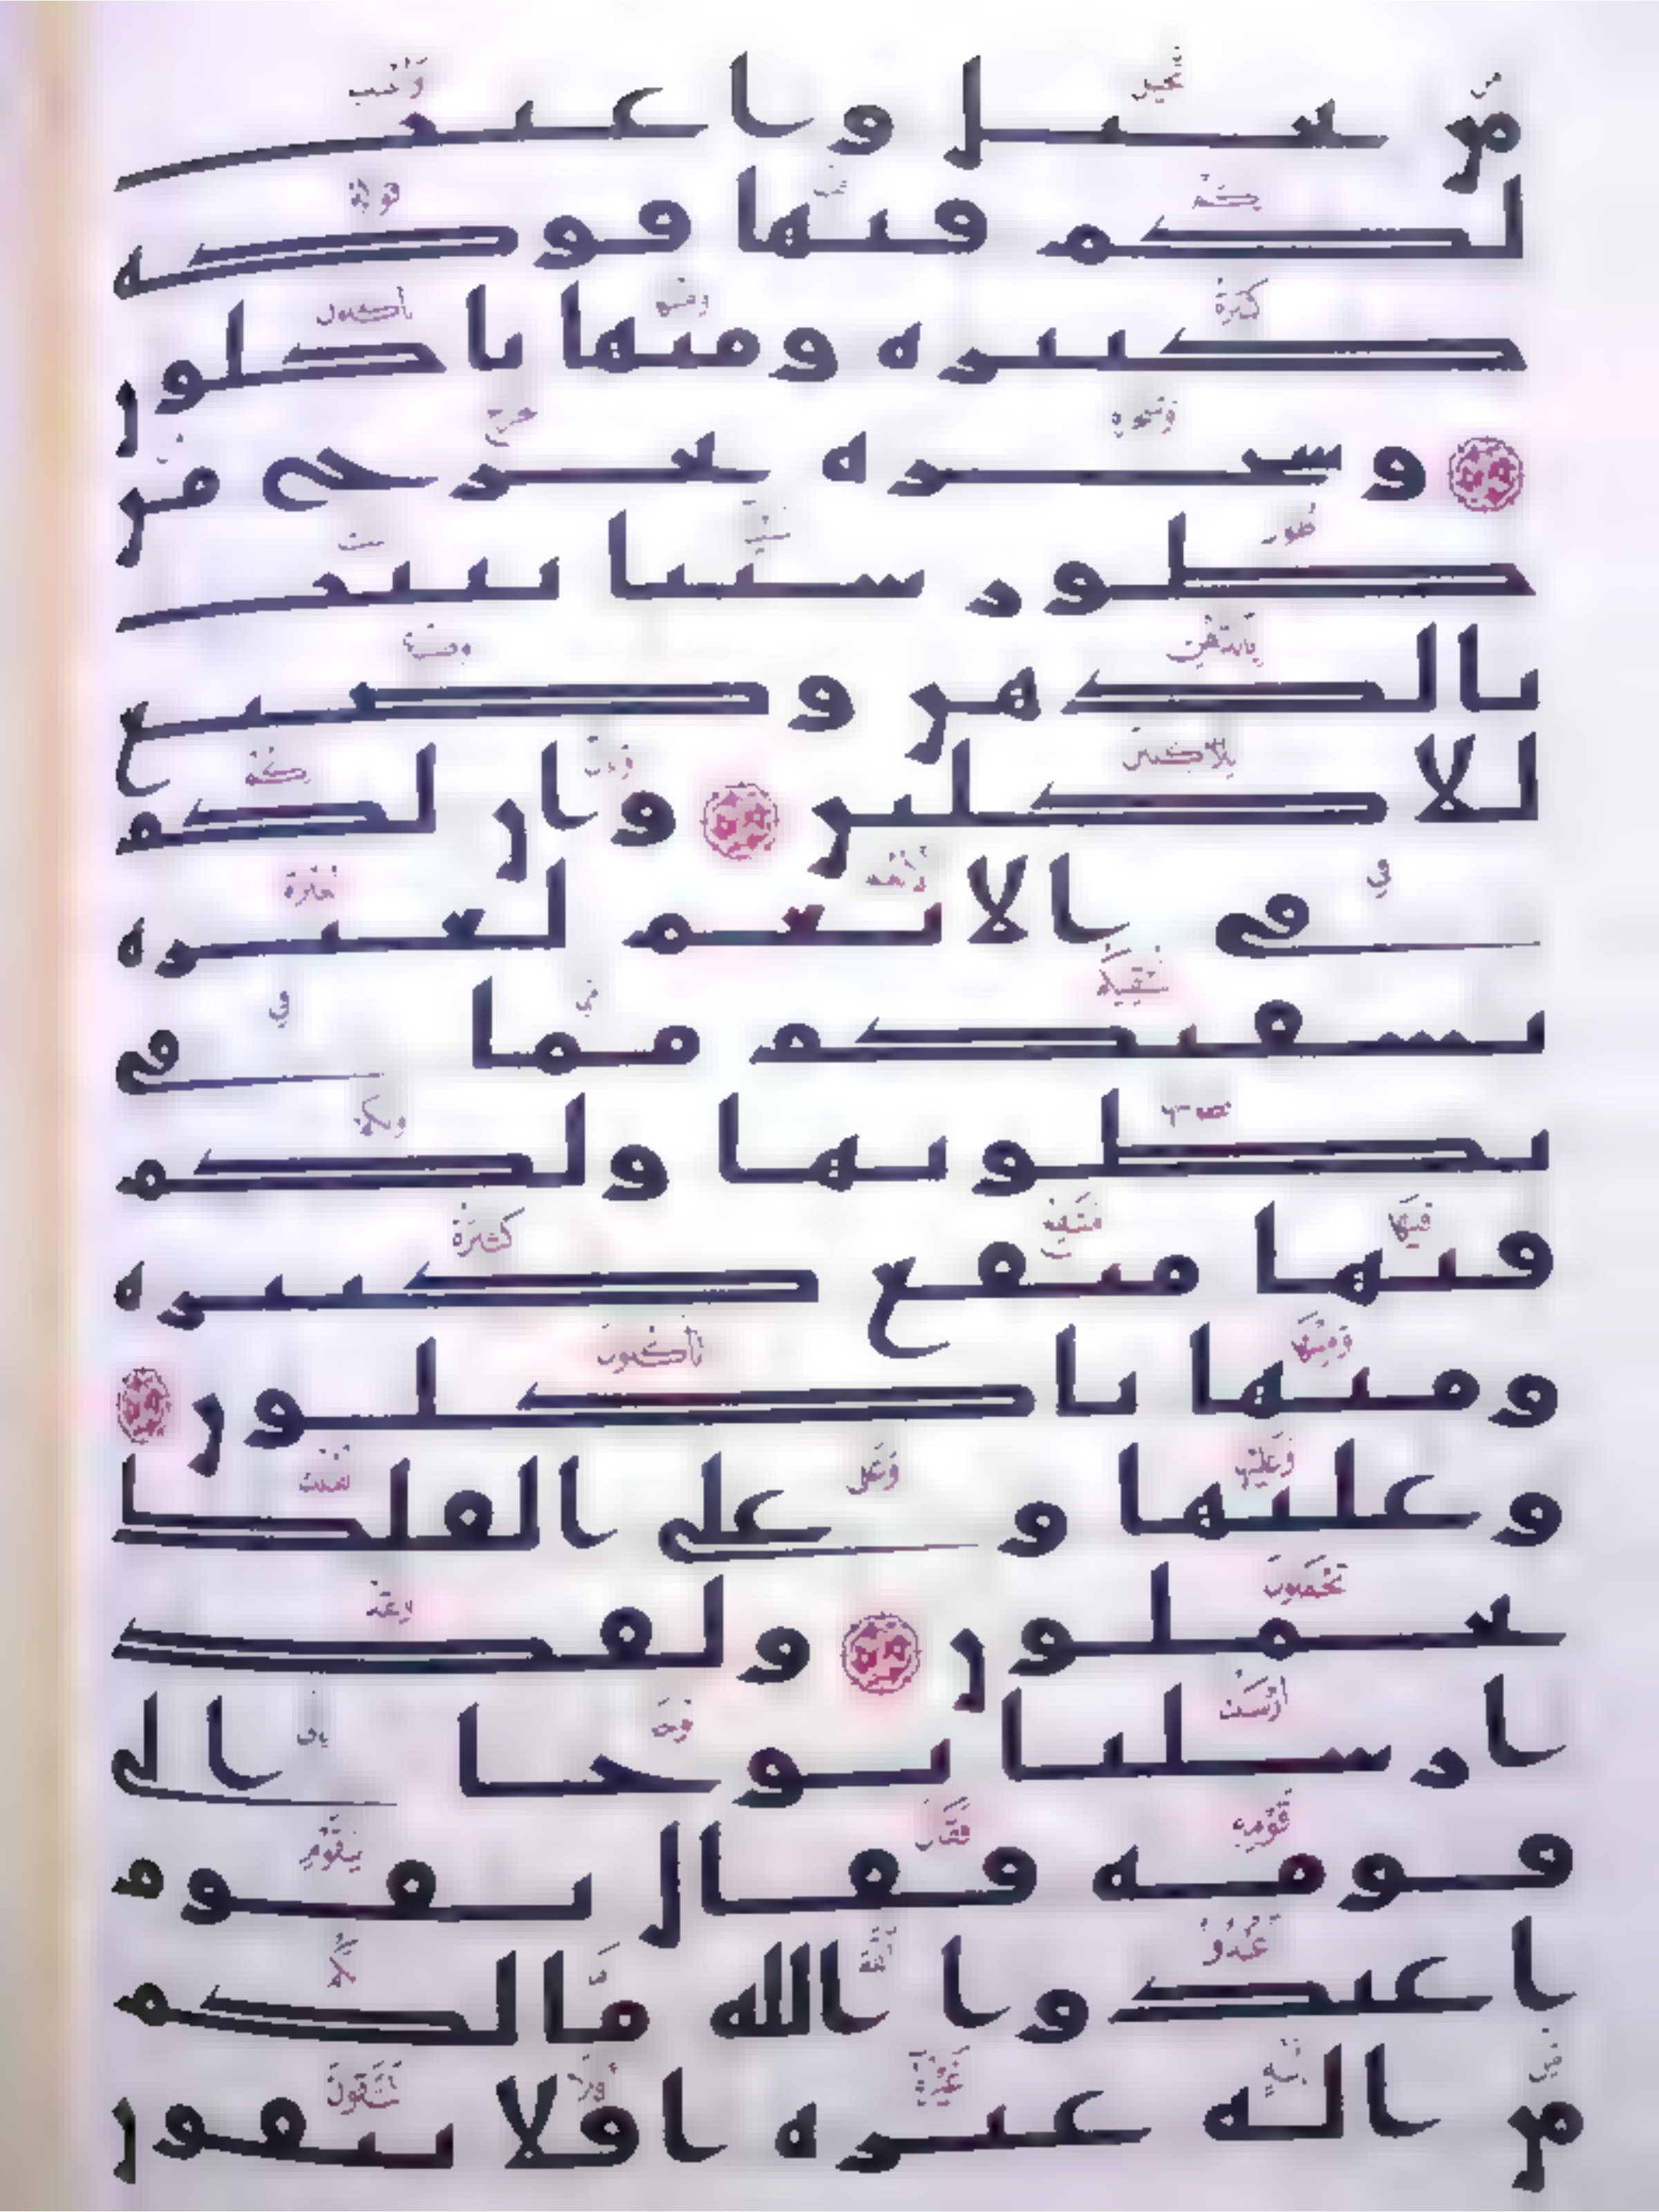 من نخيل واعنب
لكم فيها فوكه
كثيرة ومنها تاكلون
وشجرة تخرج من
طور سينا تنبت
بالدهن وصبغ
للاكلين وان لكم
في الانعم لعبرة
نسقيكم مما في
بطونها ولكم
فيها منفع كثيرة
ومنها تاكلون
وعليها وعلى الفلك
تحملون ولقد
ارسلنا نوحا الى
قومه فقال يقوم
اعبدوا الله ما لكم
من اله غيره افلا تتقون